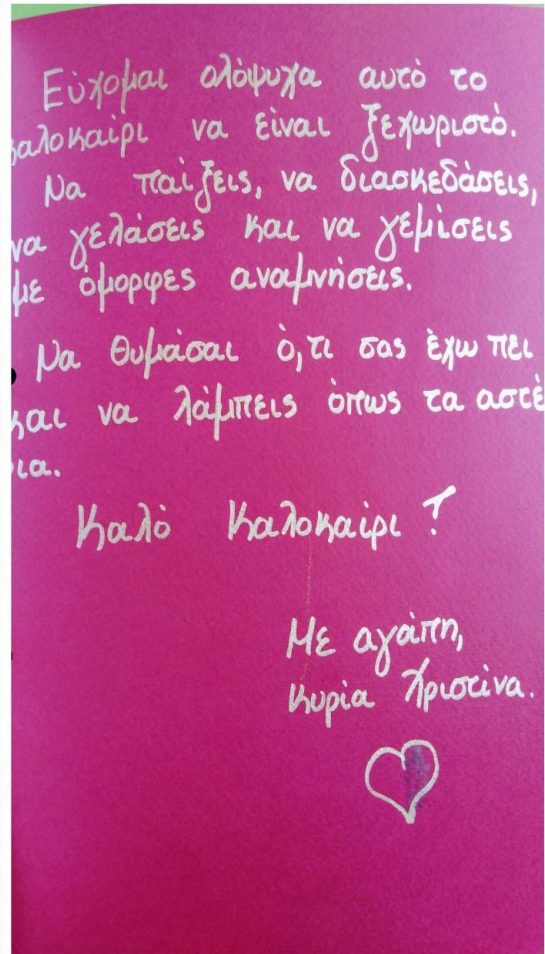 Εύχομαι ολόψυχα αυτό το
καλοκαίρι να είναι ξεχωριστό.
Να παίξεις, να διασκεδάσεις,
να γελάσεις και να γεμίσεις
με όμορφες αναμνήσεις.
Να θυμάσαι ό,τι σας έχω πει
και να λάμπεις όπως τα αστέ
ρια.
Καλό Καλοκαίρι!
Με αγάπη,
Κυρία Χριστίνα.